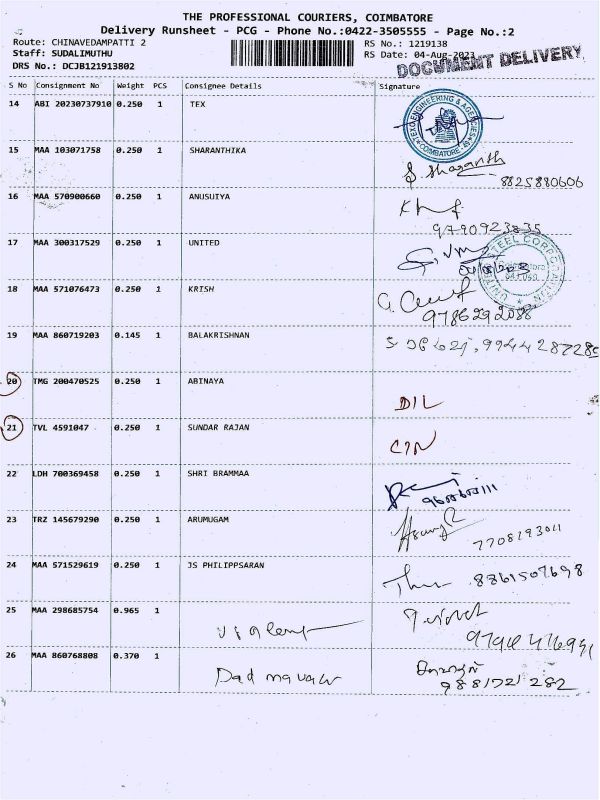 THE PROFESSIONAL COURIERS, COIMBATORE
Delivery Runsheet - PCG - Phone No.:0422-3505555 - Page No.:2
Route: CHINAVEDAMPATTI 2 RS No.: 1219138
Staff: SUDALIMUTHU RS Date: 04-Aug-2023
DOCUMENT DELIVERY
DRS No.: DCJB121913802
S No Consignment No Weight PCS Consignee Details Signature
14 ABI 20230737910 0.250 1 TEX
TEXO ENGINEERING & AGENCIES
COIMBATORE
15 MAA 103071758 0.250 1 SHARANTHIKA
8825880606
16 MAA 570900660 0.250 1 ANUSUIYA
9790923835
17 MAA 300317529 0.250 1 UNITED
UNITED STEEL CORPORATION
Coimbatore
18 MAA 571076473 0.250 1 KRISH
9786292088
19 MAA 860719203 0.145 1 BALAKRISHNAN
20 TMG 200470525 0.250 1 ABINAYA
DIL
21 TVL 4591047 0.250 1 SUNDAR RAJAN
22 LDH 700369458 0.250 1 SHRI BRAMMAA
23 TRZ 145679290 0.250 1 ARUMUGAM
7708193011
24 MAA 571529619 0.250 1 JS PHILIPPSARAN
8861507698
25 MAA 298685754 0.965 1
26 MAA 860768808 0.370 1
9881721282